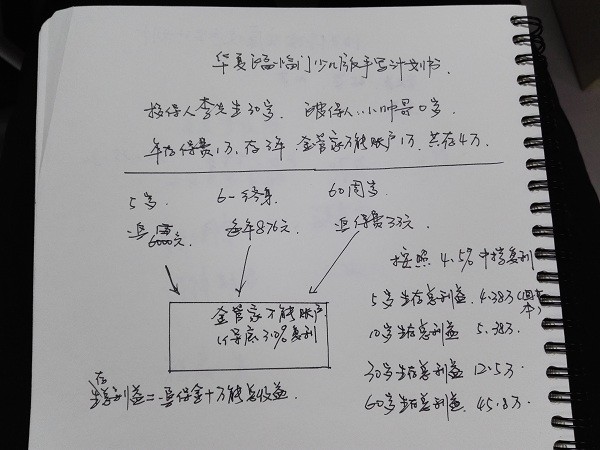 华夏福临门少儿版手写计划书.
投保人李先生30岁. 被保人:小帅哥0岁.
年存保费1万, 存3年. 金管家万能账户1万. 共存4万.
5岁. 6-终身 60周岁.
返 6000元 每年876元 返保费33元.
金管家万能账户.
保底3.0%复利
按照4.5%中档复利
5岁生存总利益. 4.38万(回本)
10岁生存总利益 5.38万.
30岁生存总利益 12.5万
60岁生存总利益. 45.8万.
生存总利益=返保金+万能总收益.